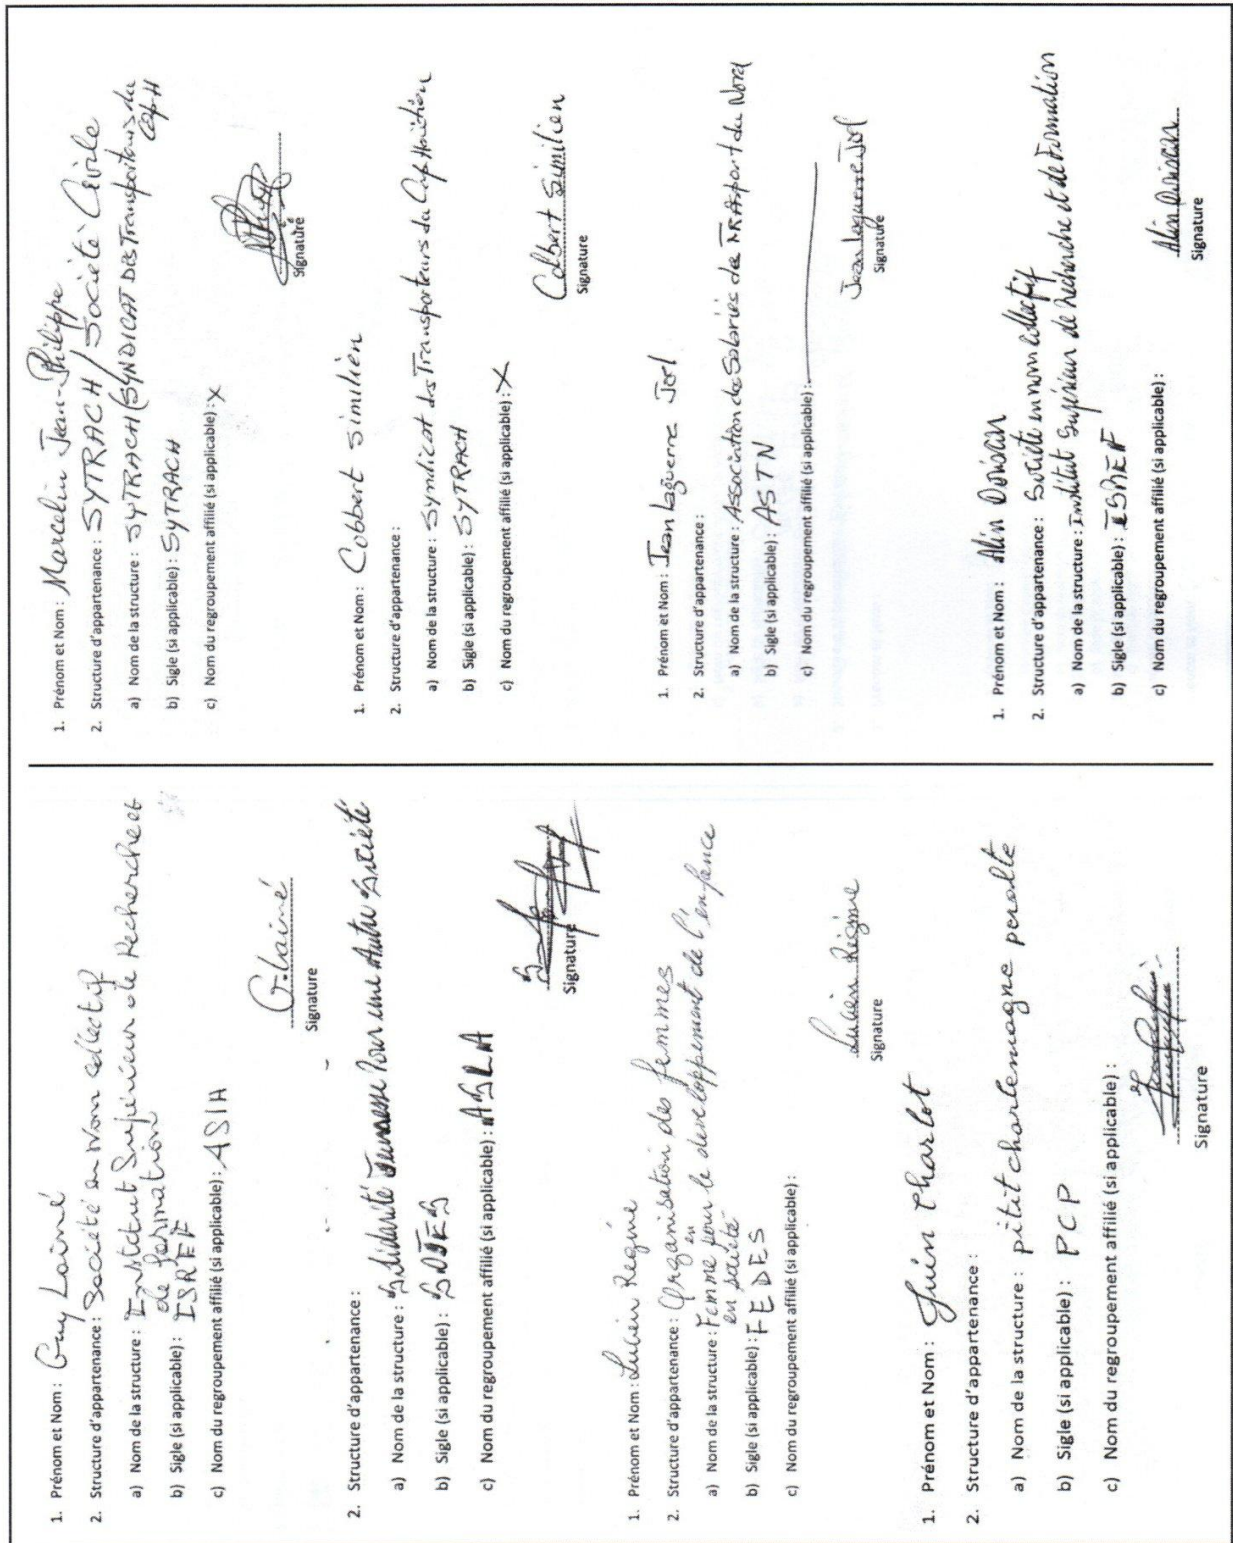 1. Prénom et Nom : Guy Lainé
2. Structure d'appartenance : Société en Nom collectif
a) Nom de la structure : Institut Supérieur de Recherche et
de formation
b) Sigle (si applicable) : ISREF
c) Nom du regroupement affilié (si applicable) : ASIA
G. Lainé
Signature
2. Structure d'appartenance :
a) Nom de la structure : Solidarité Jeunesse Pour une Autre Société
b) Sigle (si applicable) :
c) Nom du regroupement affilié (si applicable) :
Signature
1. Prénom et Nom : Lucien Régine
2. Structure d'appartenance : Organisation des femmes
a) Nom de la structure : Femme en pour le developpement de l'enfance
en société
b) Sigle (si applicable) : FEDES
c) Nom du regroupement affilié (si applicable) :
Lucien Régine
Signature
1. Prénom et Nom : Juin Charlot
2. Structure d'appartenance :
a) Nom de la structure : pitit charlemagne peralte
b) Sigle (si applicable) : PCP
c) Nom du regroupement affilié (si applicable) :
Signature
1. Prénom et Nom : Marcelin Jean-Philippe
2. Structure d'appartenance : SYTRACH / Société Civile
a) Nom de la structure : SYTRACH (SYNDICAT Des Transporteurs du
Cap-H
b) Sigle (si applicable) : SYTRACH
c) Nom du regroupement affilié (si applicable) : X
Signature
1. Prénom et Nom : Colbert Similien
2. Structure d'appartenance :
a) Nom de la structure : Syndicat des Transporteurs du Cap Haïtien
b) Sigle (si applicable) : SYTRACH
c) Nom du regroupement affilié (si applicable) : X
Colbert Similien
Signature
1. Prénom et Nom : Jean Laguerre Joel
2. Structure d'appartenance :
a) Nom de la structure : Association des Salariés de TRAsport du Nord
b) Sigle (si applicable) : ASTN
c) Nom du regroupement affilié (si applicable) :
Jean Laguerre Joel
Signature
1. Prénom et Nom : Alin
2. Structure d'appartenance : Société en nom collectif
a) Nom de la structure : Institut Supérieur de Recherche et de Formation
b) Sigle (si applicable) : ISREF
c) Nom du regroupement affilié (si applicable) :
Alin
Signature